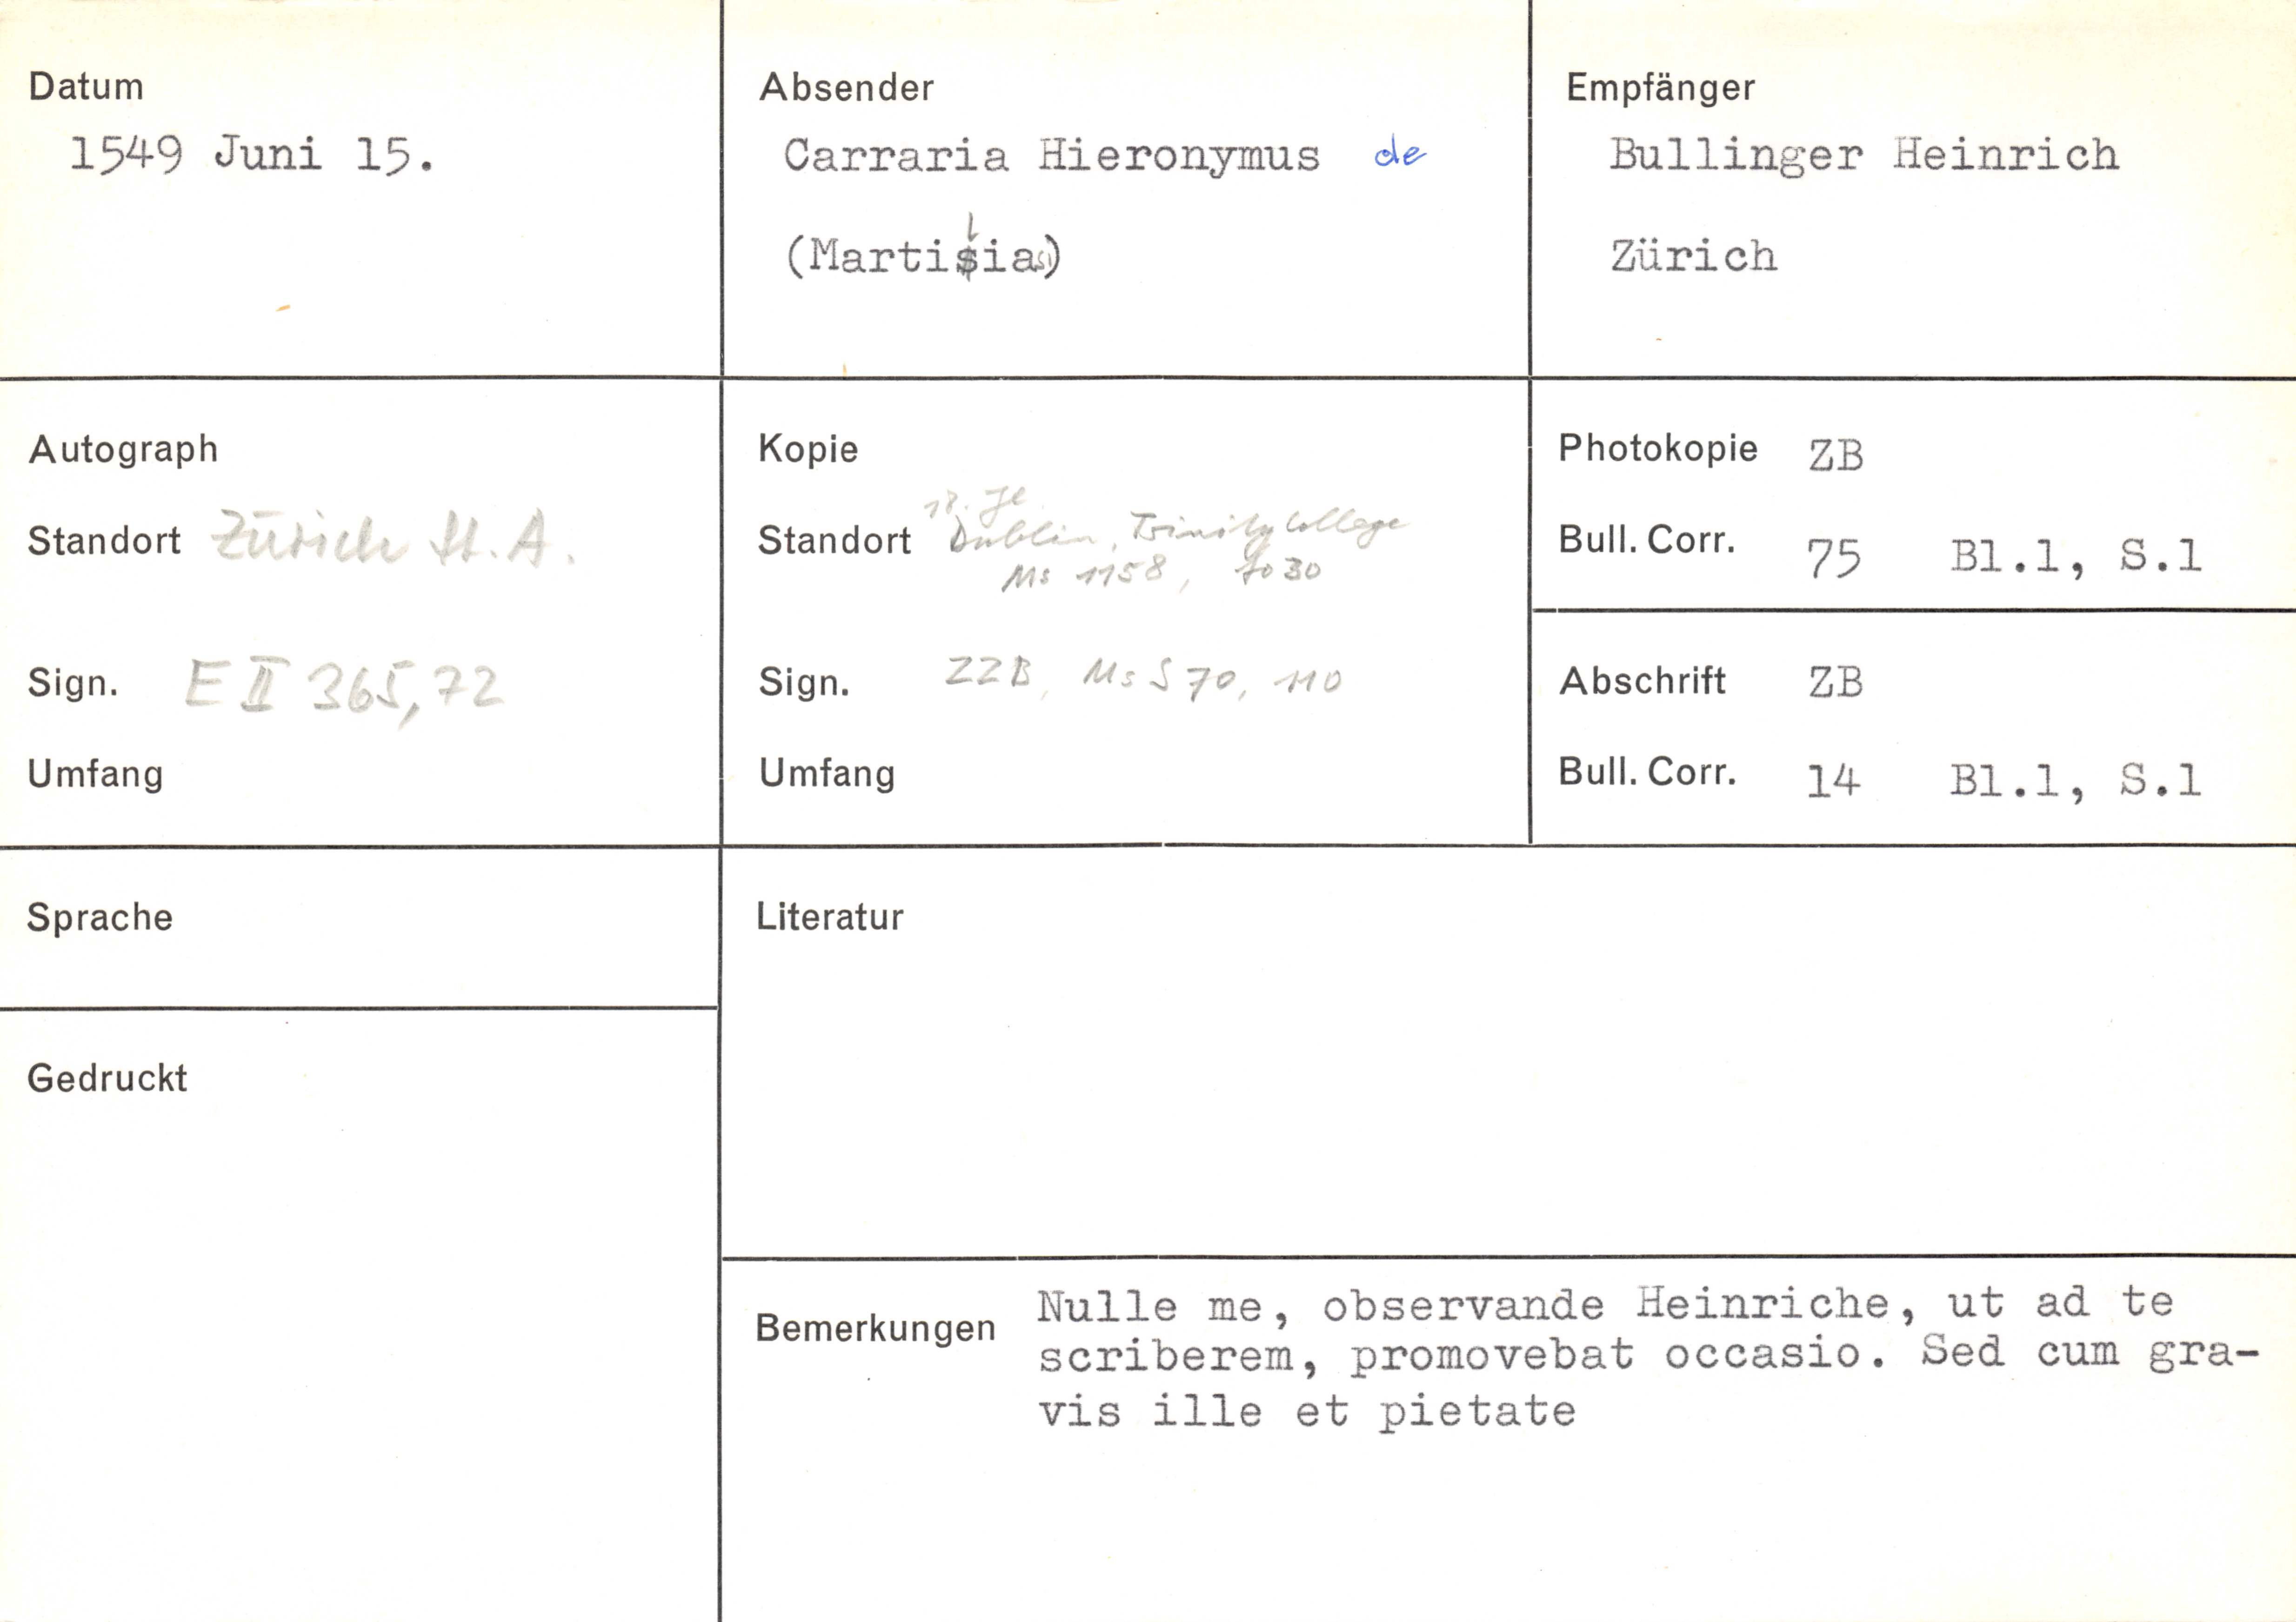 Datum
1549 Juni 15.
Absender
Carraria Hieronymus de
(Martisia)
Empfänger
Bullinger Heinrich
Zürich
Autograph
Standort Zürich St.A.
Sign. E II 365,72
Umfang
Kopie
18. Jh.
Standort Dublin, Trinity College
Ms 1158, fo 30
Sign. ZZB, Ms S 70, 110
Umfang
Photokopie ZB
Bull. Corr. 75 Bl.1, S.1
Abschrift ZB
Bull. Corr. 14 Bl.1, S.1
Sprache
Literatur
Gedruckt
Bemerkungen Nulle me, observande Heinriche, ut ad te
scriberem, promovebat occasio. Sed cum gra-
vis ille et pietate